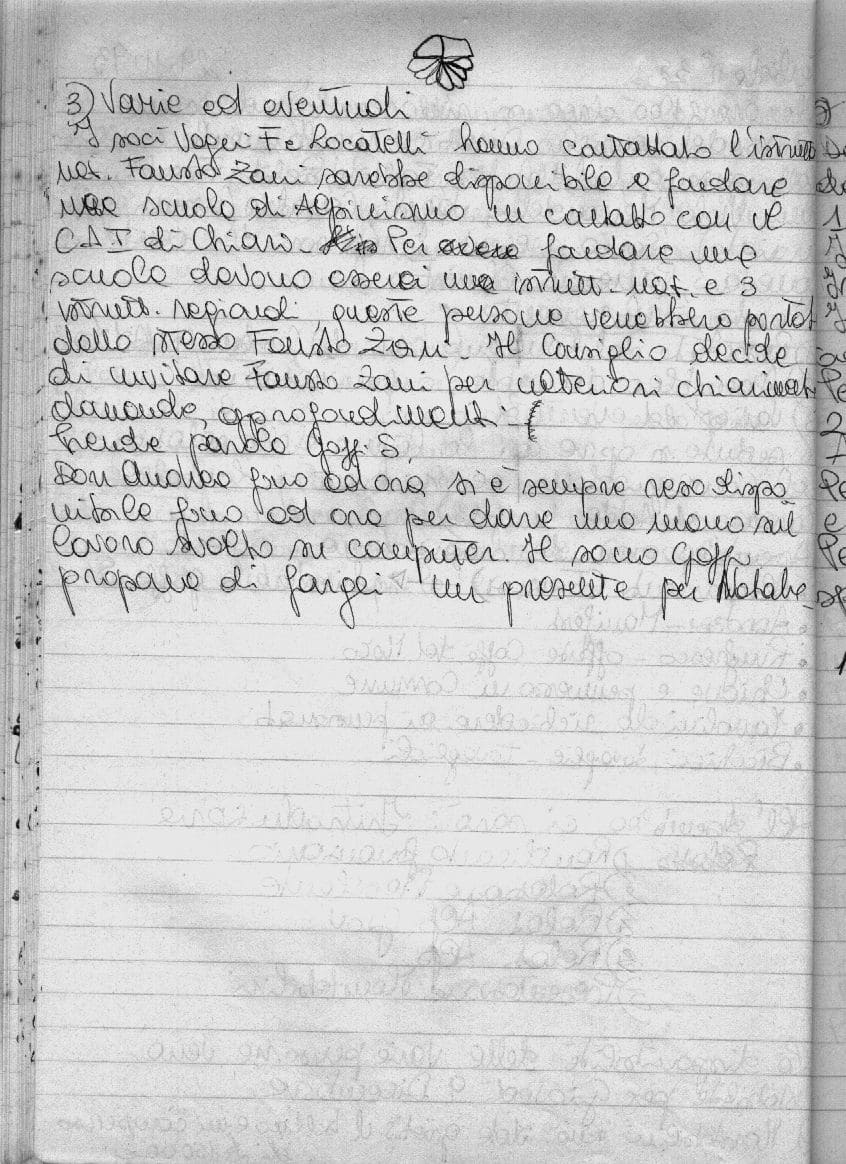 3) Varie ed eventuali
I soci Vageri F e Locatelli hanno contattato l'istrutt
naz. Fausto Zani sarebbe disponibile a fondare
una scuola di Alpinismo in contatto con il
CAI di Chiari. Per avere fondare una
scuola devono esserci una istrutt. naz. e 3
istrutt. regionali, queste persone verrebbero portat
dallo stesso Fausto Zani. Il Consiglio decide
di invitare Fausto Zani per ulteriori chiarimenti
domande, approfondimenti
Prende parola Goffi S.
Don Andrea fino ad ora si è sempre reso dispo
nibile fino ad ora per dare una mano sul
lavoro svolto su computer. Il socio Goffi
propone di fargli un presente per Natale